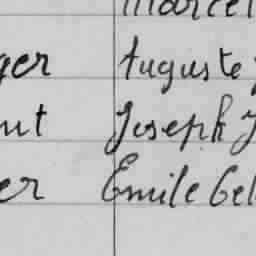 Marcel
ger Auguste
nt Joseph J
er Emile Cel